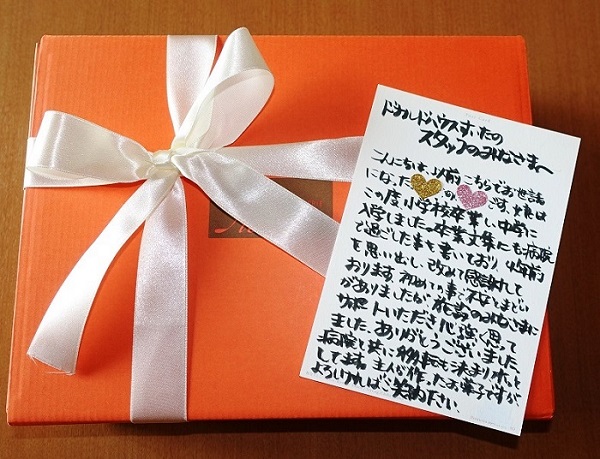 ドナルド・ハウスすいたの
スタッフのみなさまへ
こんにちは、以前こちらでお世話
になった の です。娘は
この度小学校卒業し、中学に
入学しました。卒業文集にも病院
で過ごした事を書いており、4年前
を思い出し、改めて感謝して
おります。初めての事で不安とまどい
がありましたが、施設のみなさまに
サポートいただき心強く思って
ました。ありがとうございました。
病院と共に移転も決まりホッと
してます。主人が作ったお菓子ですが
よろしければご笑納下さい。